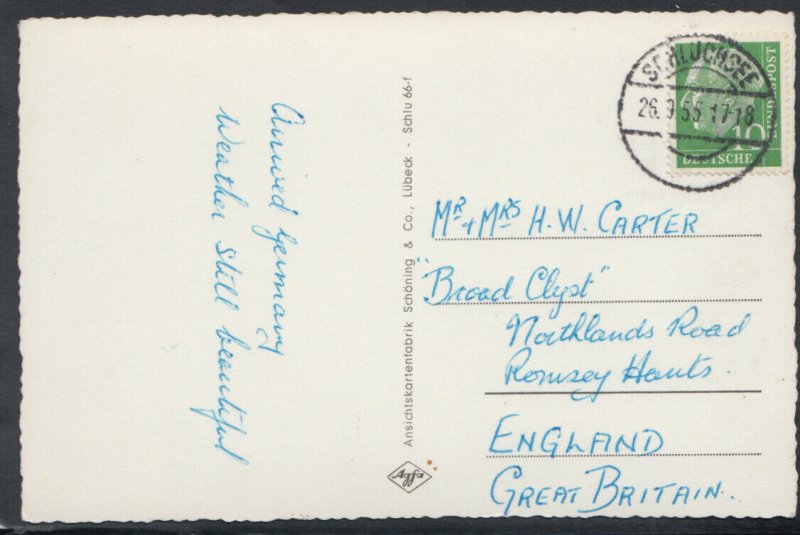 Arrived Germany
Weather still beautiful
Ansichtskartenfabrik Schöning & Co., Lübeck - Schlu 66-f
Agfa
SCHLUCHSEE
26.9.55 17-18
10
BUNDESPOST
DEUTSCHE
Mr + Mrs H. W. CARTER
"Broad Clyst"
Northlands Road
Romsey Hants.
ENGLAND
GREAT BRITAIN.